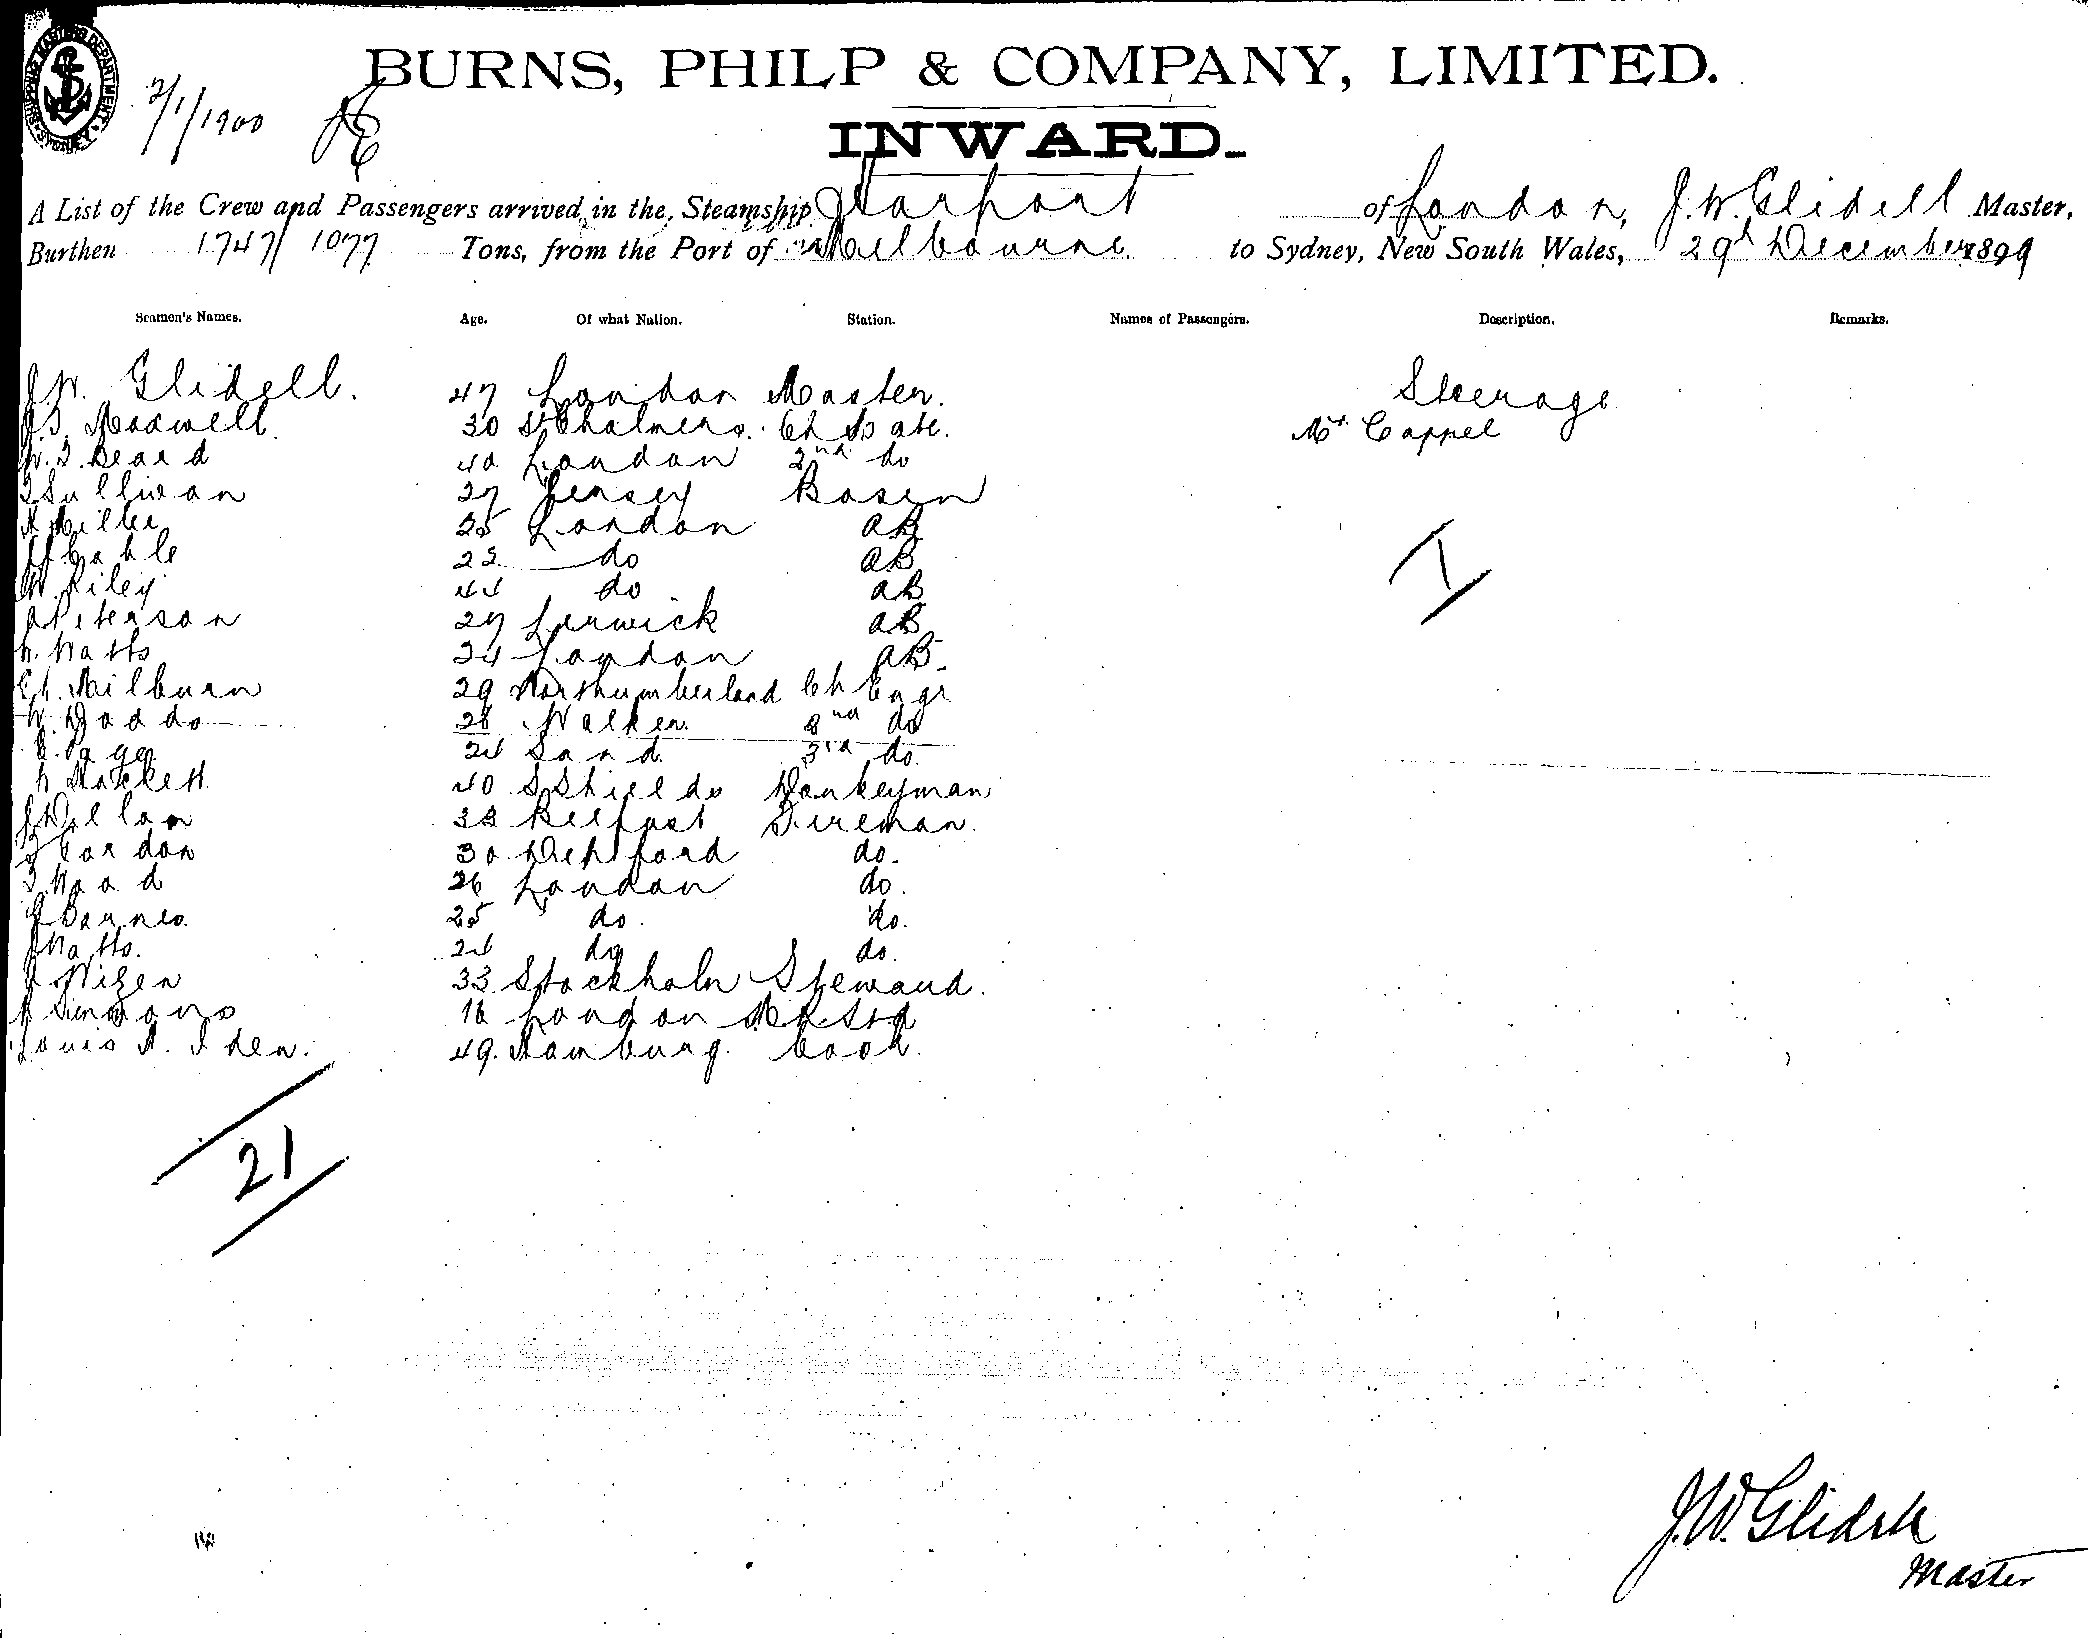 BURNS, PHILP & COMPANY, LIMITED.
2/1/1900
INWARD.
A List of the Crew and Passengers arrived in the Steamship Harport of London, J. W. Glidell Master,
Burthen 1747/1077 Tons, from the Port of Melbourne to Sydney, New South Wales, 29th December 1899
Seamen's Names. Age. Of what Nation. Station. Names of Passengers. Description. Remarks.
J W. Glidell. 47 London Master. Steerage
Maxwell 30 St Chalmers. Ch Mate. Mr. Cappel
Beard 40 London 2nd do
Sullivan 27 Jersey Bosen
Miller 25 London AB
Cable 22 do AB
W. Riley 44 do AB
Peterson 27 Lerwick AB 1
Watts 24 London AB
Milburn 29 Northumberland Ch Engr
W. Doddo 28 Walker 2nd do
Page 24 Sand 3rd do.
Hackett 40 S Shields Donkeyman
Dillon 33 Belfast Fireman.
Gordon 30 Deptford do.
Wood 26 London do.
Barnes. 25 do. do.
Watts. 24 do do.
33 Stockholm Steward.
Simmons 16 London
Louis A. Iden. 49. Hamburg. Cook.
21
J.W. Glidell
Master